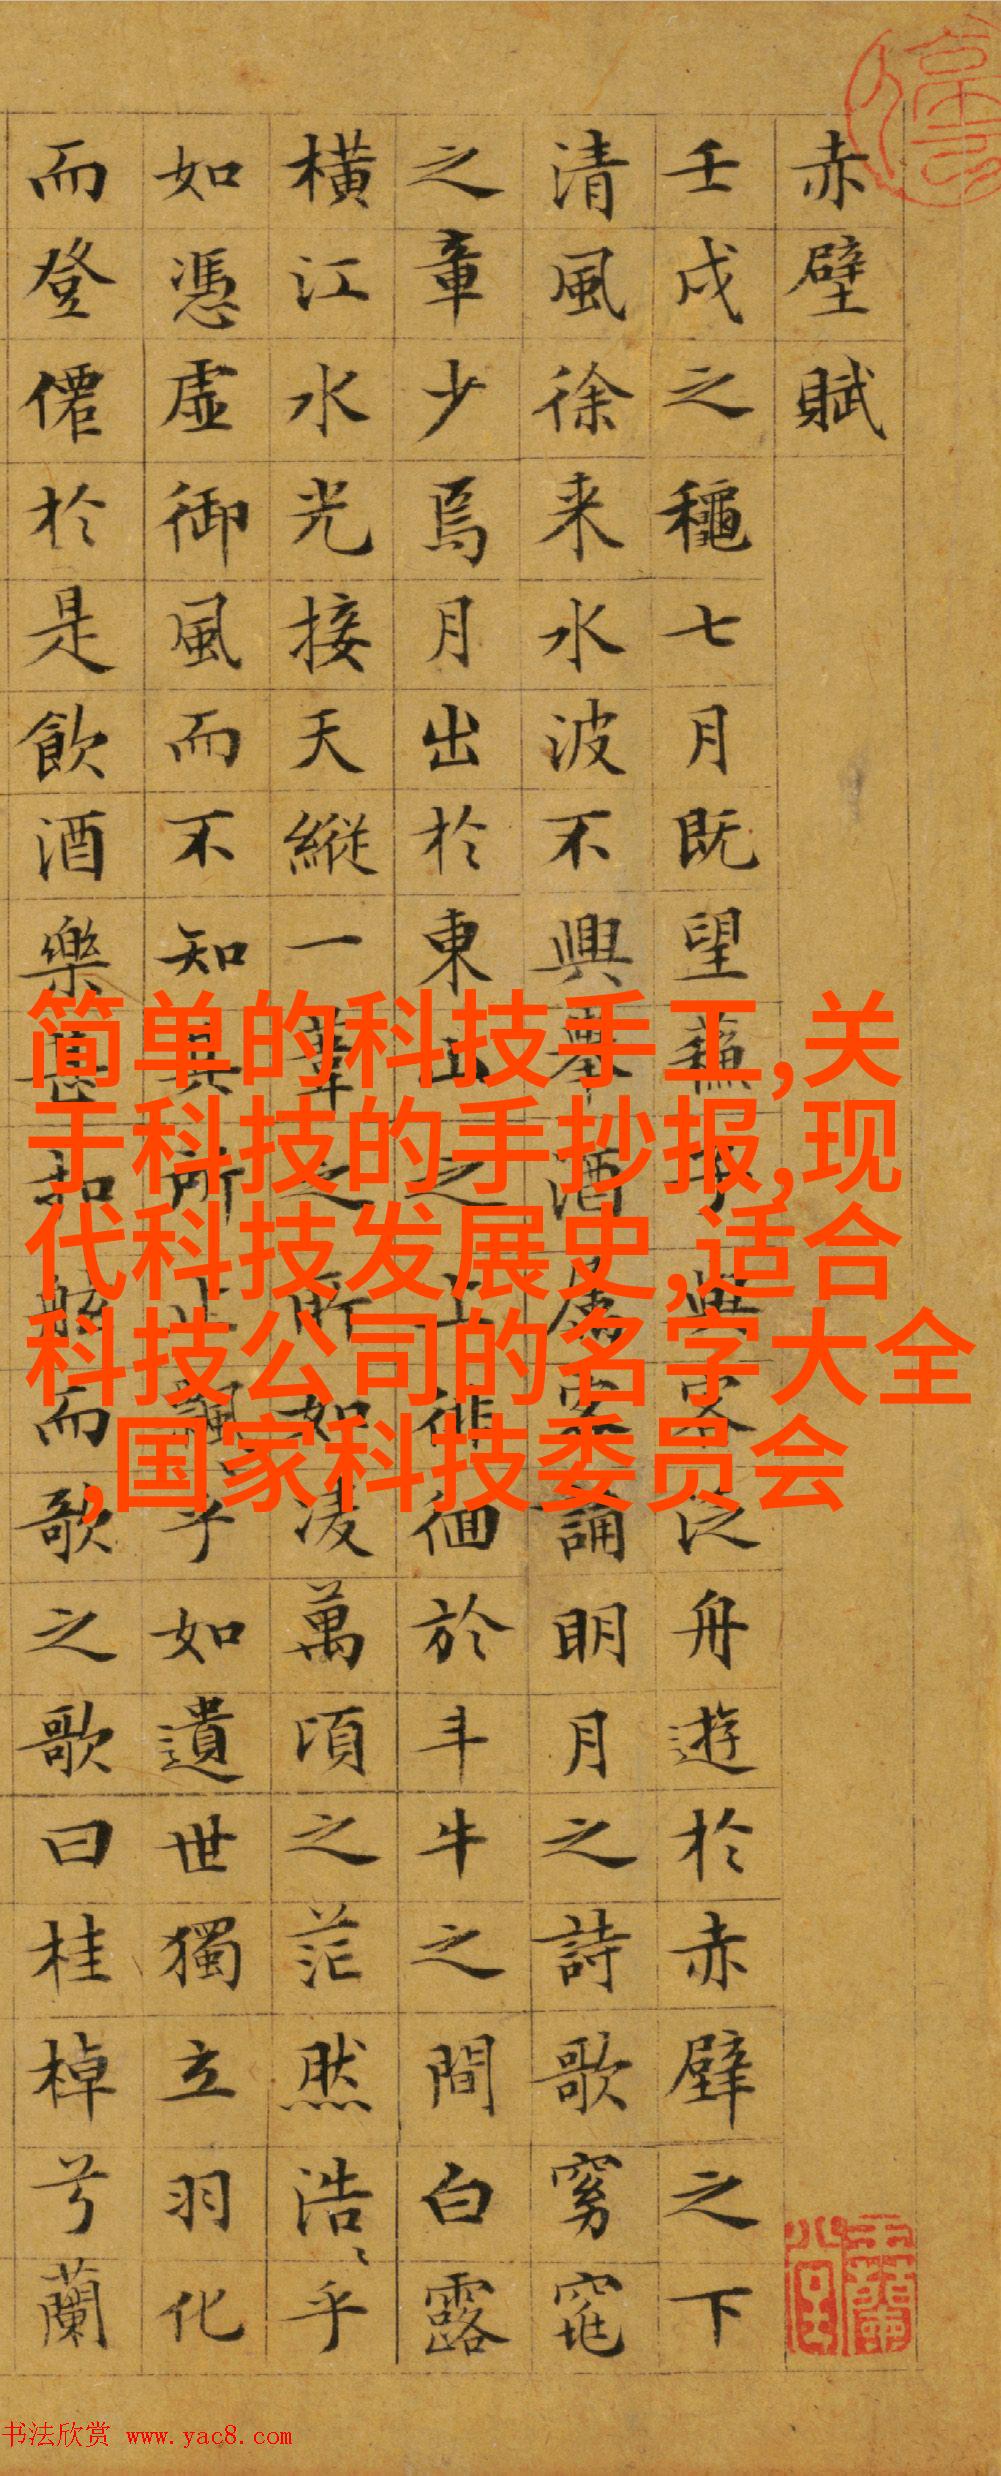 赤壁賦
壬戌之穐七月既望蘓子與客泛舟遊於赤壁之下
清風徐来水波不興舉酒屬客誦明月之詩歌窈窕
之章少焉月出於東山之上徘徊於斗牛之間白露
橫江水光接天縱一葦之所如凌萬頃之茫然浩〻乎
如憑虛御風而不知其所止飄乎如遺世獨立羽化
而登僊於是飲酒樂甚扣舷而歌之歌曰桂棹兮蘭
简单的科技手工,关
于科技的手抄报,现
代科技发展史,适合
科技公司的名字大全
,国家科技委员会
书法欣赏 www.yac8.com